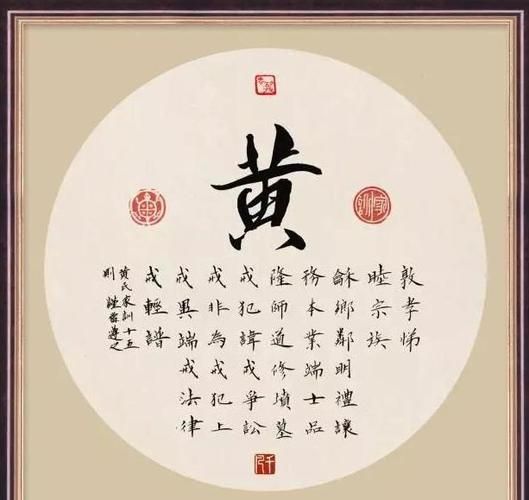 黄
家訓
敦孝悌
睦宗族
龢鄉鄰明禮讓
務本業端士品
隆師道修墳墓
戒犯諱戒爭訟
戒非為戒犯上
戒異端戒法律
戒輕譜
黃氏家訓十五
則 謹遵之